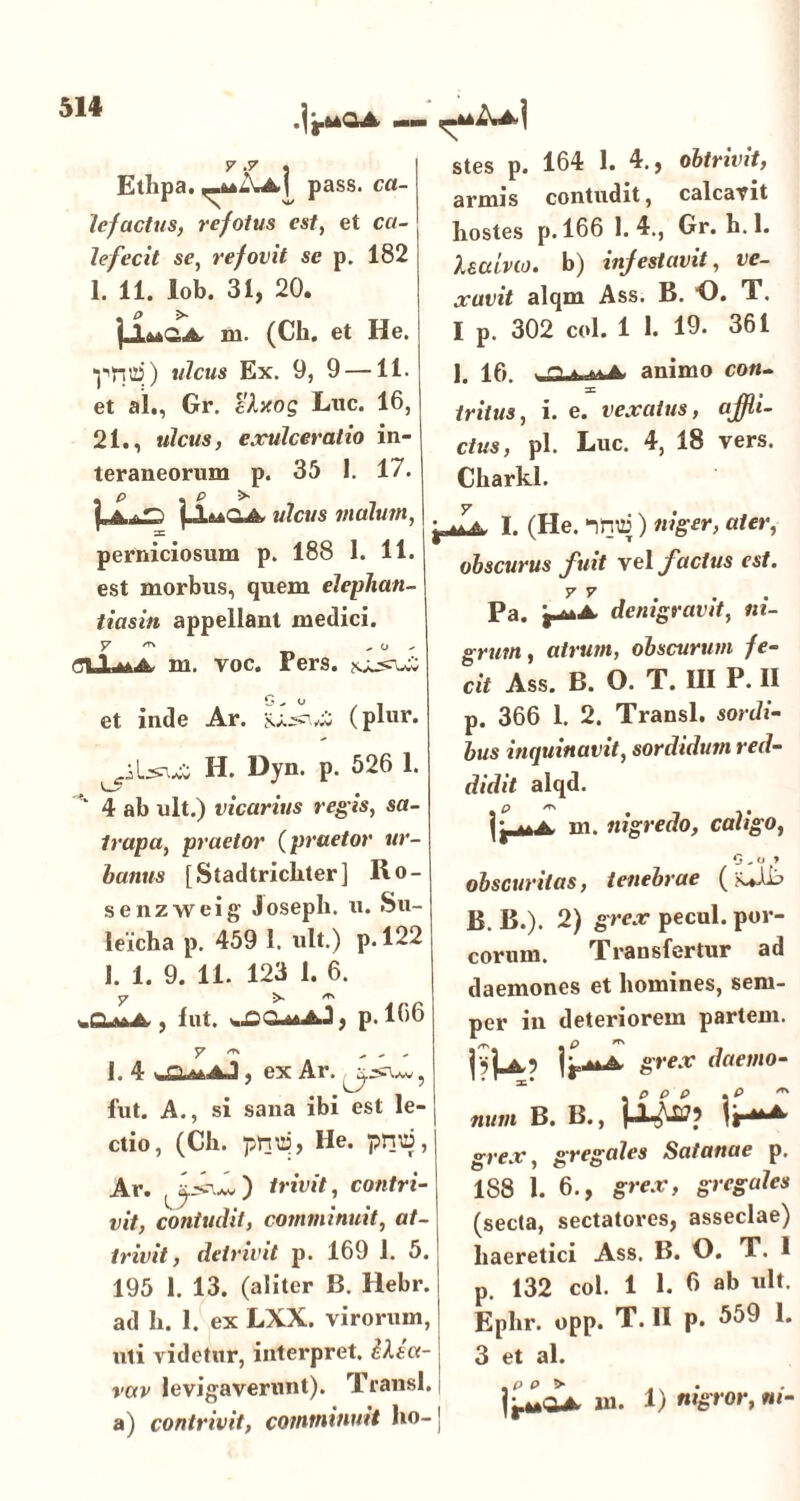 514
ܫܘܚܪܐ. — ܐܫܬܚܢ
Ethpa. ܐܫܬܚܢ pass. ca-
lefactus, refotus est, et ca-
lefecit se, refovit se p. 182
l. 11. Iob. 31, 20.
ܫܘܚܢܐ m. (Ch. et He.
שחין) ulcus Ex. 9, 9—11.
et al., Gr. ἕλκος Luc. 16,
21., ulcus, exulceratio in-
teraneorum p. 35 l. 17.
ܫܘܚܢܐ ܒܝܫܐ ulcus malum,
perniciosum p. 188 l. 11.
est morbus, quem elephan-
tiasin appellant medici.
ܫܚܢܗ m. voc. Pers. شحنه
et inde Ar. شحنة (plur.
شحانى H. Dyn. p. 526 l.
4 ab ult.) vicarius regis, sa-
trapa, praetor (praetor ur-
banus [Stadtrichter] Ro-
senzweig Joseph. u. Su-
leïcha p. 459 l. ult.) p. 122
l. 1. 9. 11. 123 l. 6.
ܫܚܩ, fut. ܢܫܚܘܩ, p. 166
l. 4 ܢܫܚܩ, ex Ar. سحق,
fut. A., si sana ibi est le-
ctio, (Ch. שחק, He. שחק,
Ar. سحق) trivit, contri-
vit, contudit, comminuit, at-
trivit, detrivit p. 169 l. 5.
195 l. 13. (aliter B. Hebr.
ad h. l. ex LXX. virorum,
uti videtur, interpret. ἐλέα-
ναν levigaverunt). Transl.
a) contrivit, comminuit ho-
stes p. 164 l. 4., obtrivit,
armis contudit, calcavit
hostes p. 166 l. 4., Gr. h. l.
λεαίνω. b) infestavit, ve-
xavit alqm Ass. B. O. T.
I p. 302 col. 1 l. 19. 361
l. 16. ܫܚܝܩ animo con-
tritus, i. e. vexatus, affli-
ctus, pl. Luc. 4, 18 vers.
Charkl.
ܫܚܪ I. (He. שחר) niger, ater,
obscurus fuit vel factus est.
Pa. ܫܚܪ denigravit, ni-
grum, atrum, obscurum fe-
cit Ass. B. O. T. III P. II
p. 366 l. 2. Transl. sordi-
bus inquinavit, sordidum red-
didit alqd.
ܫܚܪܐ m. nigredo, caligo,
obscuritas, tenebrae (ظلمة
B. B.). 2) grex pecul. por-
corum. Transfertur ad
daemones et homines, sem-
per in deteriorem partem.
ܫܚܪܐ ܕܫܐܕܐ grex daemo-
num B. B., ܫܚܪܐ ܕܣܛܢܐ
grex, gregales Satanae p.
188 l. 6., grex, gregales
(secta, sectatores, asseclae)
haeretici Ass. B. O. T. I
p. 132 col. 1 l. 6 ab ult.
Ephr. opp. T. II p. 559 l.
3 et al.
ܫܘܚܪܐ m. 1) nigror, ni-